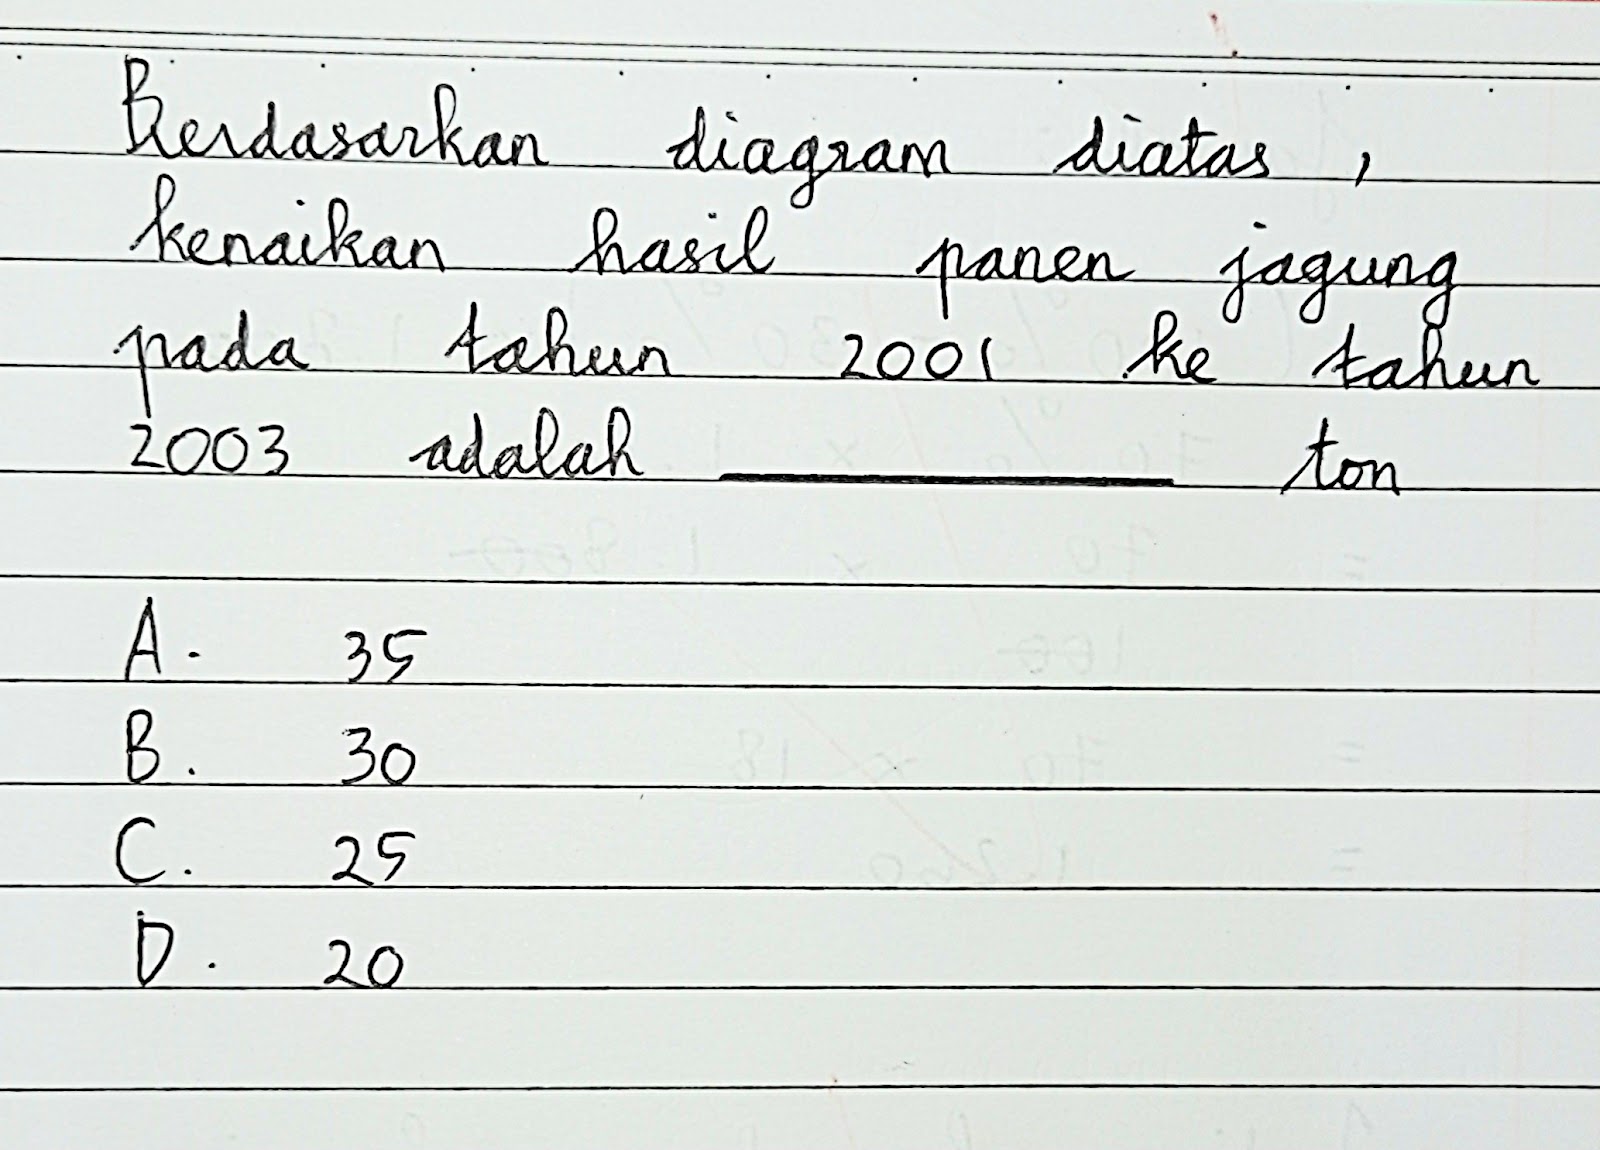 Berdasarkan diagram diatas,
kenaikan hasil panen jagung
pada tahun 2001 ke tahun
2003 adalah ________ ton
A. 35
B. 30
C. 25
D. 20